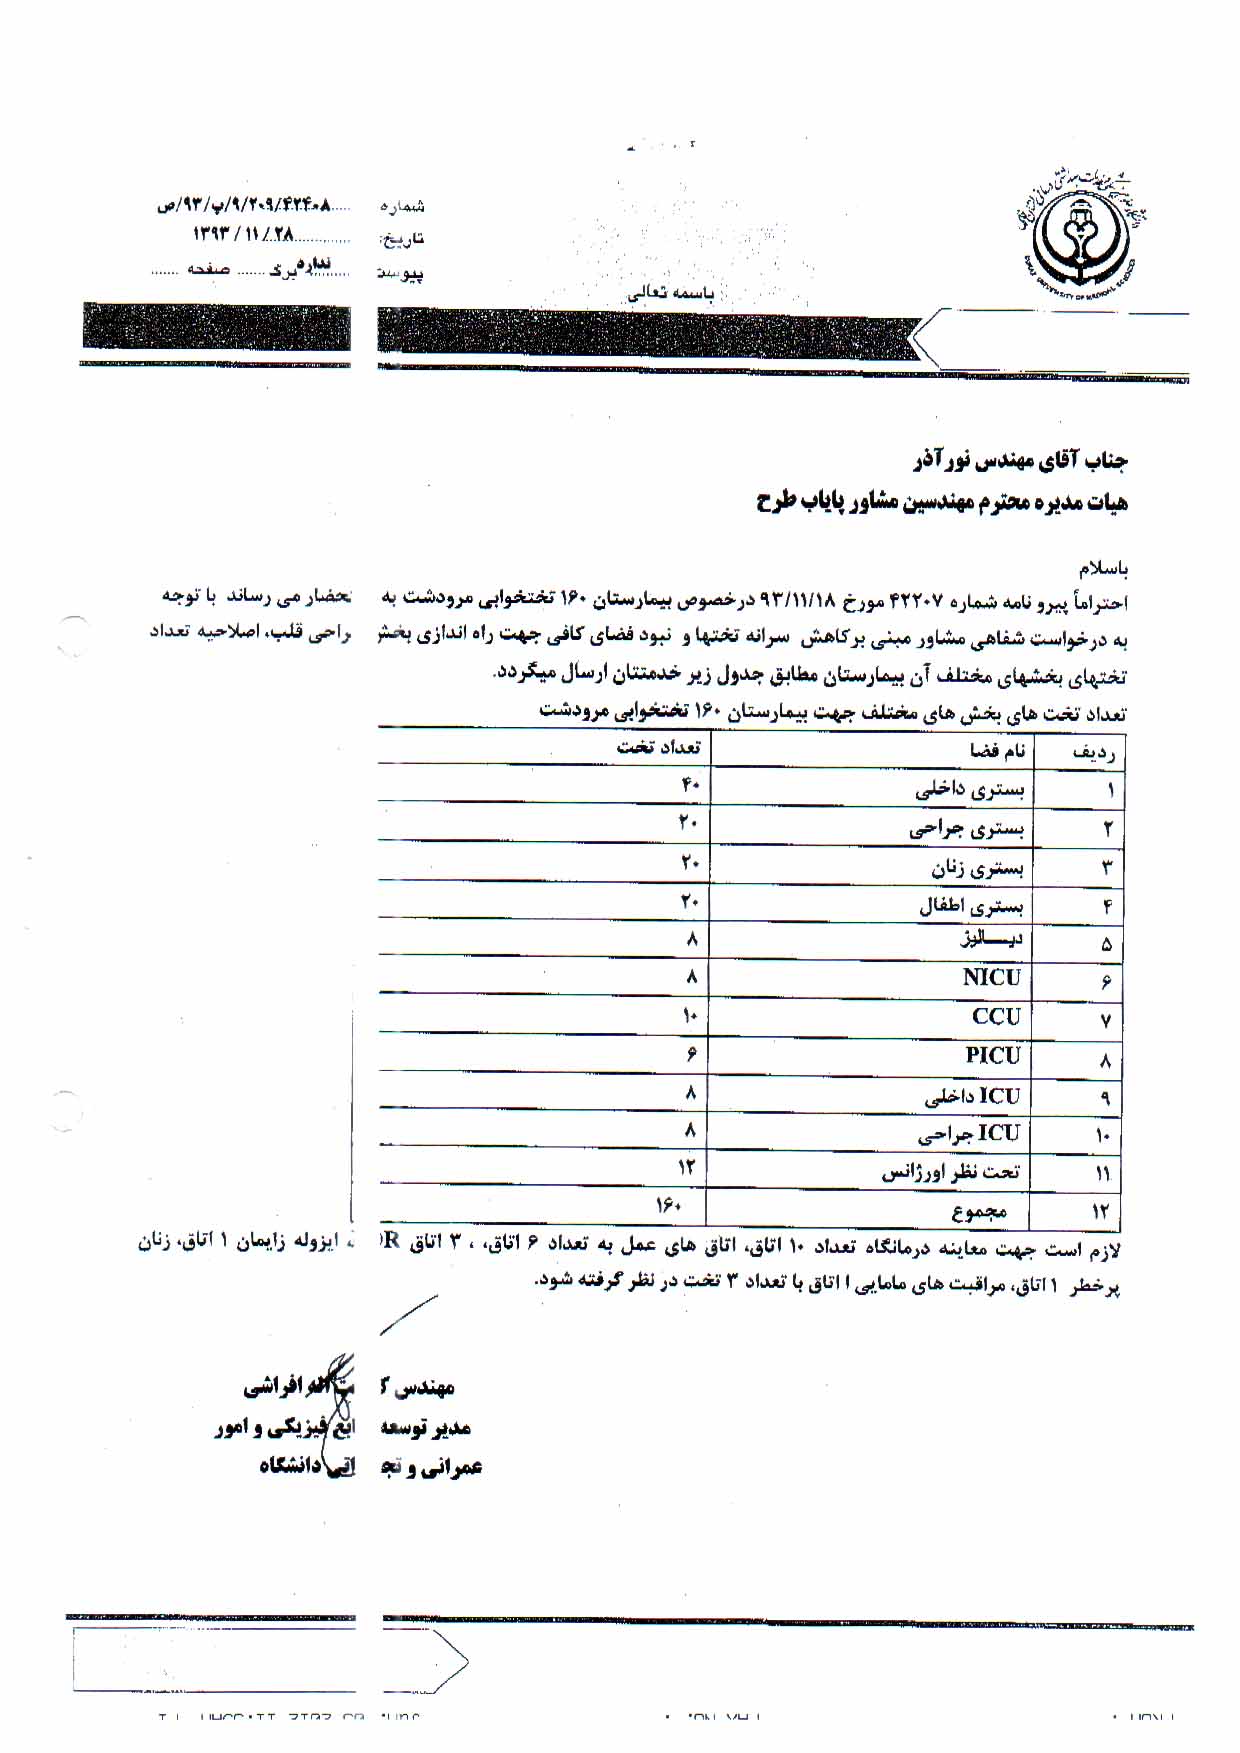 شماره .....۹۳/پ/۹/۲۰۹/۴۲۴۰۸/ص
تاریخ: .............۱۳۹۳/۱۱/۲۸
پیوست ..........ندارد برگ ...... صفحه .......
باسمه تعالی
SHIRAZ UNIVERSITY OF MEDICAL SCIENCES
جناب آقای مهندس نورآذر
هیات مدیره محترم مهندسین مشاور پایاب طرح
باسلام
احتراماً پیرو نامه شماره ۴۲۲۰۷ مورخ ۹۳/۱۱/۱۸ درخصوص بیمارستان ۱۶۰ تختخوابی مرودشت به تحضار می رساند با توجه
به درخواست شفاهی مشاور مبنی برکاهش سرانه تختها و نبود فضای کافی جهت راه اندازی بخش راحی قلب، اصلاحیه تعداد
تختهای بخشهای مختلف آن بیمارستان مطابق جدول زیر خدمتتان ارسال میگردد.
تعداد تخت های بخش های مختلف جهت بیمارستان ۱۶۰ تختخوابی مرودشت
ردیف نام فضا تعداد تخت
۱ بستری داخلی ۴۰
۲ بستری جراحی ۲۰
۳ بستری زنان ۲۰
۴ بستری اطفال ۲۰
۵ دیــالیز ۸
۶ NICU ۸
۷ CCU ۱۰
۸ PICU ۶
۹ ICU داخلی ۸
۱۰ ICU جراحی ۸
۱۱ تحت نظر اورژانس ۱۲
۱۲ مجموع ۱۶۰
لازم است جهت معاینه درمانگاه تعداد ۱۰ اتاق، اتاق های عمل به تعداد ۶ اتاق، ، ۳ اتاق ایزوله زایمان ۱ اتاق، زنان
پرخطر ۱ اتاق، مراقبت های مامایی ۱ اتاق با تعداد ۳ تخت در نظر گرفته شود.
مهندس افراشی
مدیر توسعه فیزیکی و امور
عمرانی و دانشگاه